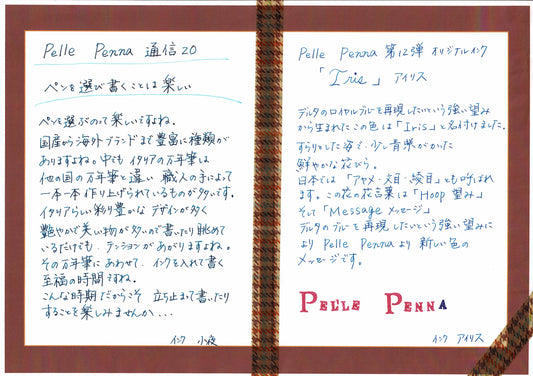 Pelle Penna 通信20
ペンを選び書くことは楽しい
ペンを選ぶのって楽しいですよね。
国産から海外ブランドまで豊富に種類が
ありますよね。中でも イタリアの万年筆は
他の国の万年筆と違い 職人の手によって
一本一本作り上げられているものが多いです。
イタリアらしい彩り豊かな デザインが多く
艶やかで美しい物が多いので書いたり眺めて
いるだけでも、テンションがあがりますよね。
その万年筆にあわせて、インクを入れて書く
至福の時間ですね。
こんな時期だからこそ 立ち止まって書いたり
することを楽しみませんか...
インク 小夜
Pelle Penna 第12弾 オリジナルインク
「Iris」 アイリス
デルタのロイヤルブルーを再現したいという強い望み
から生まれたこの色は「Iris」と名付けました。
すらりとした姿で、少し青紫がかった
鮮やかな花びら。
日本では「アヤメ・文目・綾目」とも呼ばれ
ます。この花の花言葉は「Hoop 望み」
そして「Message メッセージ」
デルタのブルーを再現したいという強い望みに
より Pelle Pennaより 新しい色の
メッセージです。
PELLE PENNA
インク アイリス